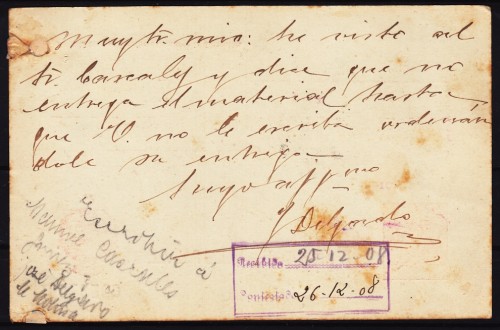 Muy Sr. mio: he visto al
Sr. Cascaly y dice que no
entrega el material hasta
que V. no le escriba ordenán
dole su entrega
Suyo affmo
J Delgado
Escribir á
Manuel Cascales
José Delgado
de Molina
Recibida 25-12-08
Contestada 26-12-08